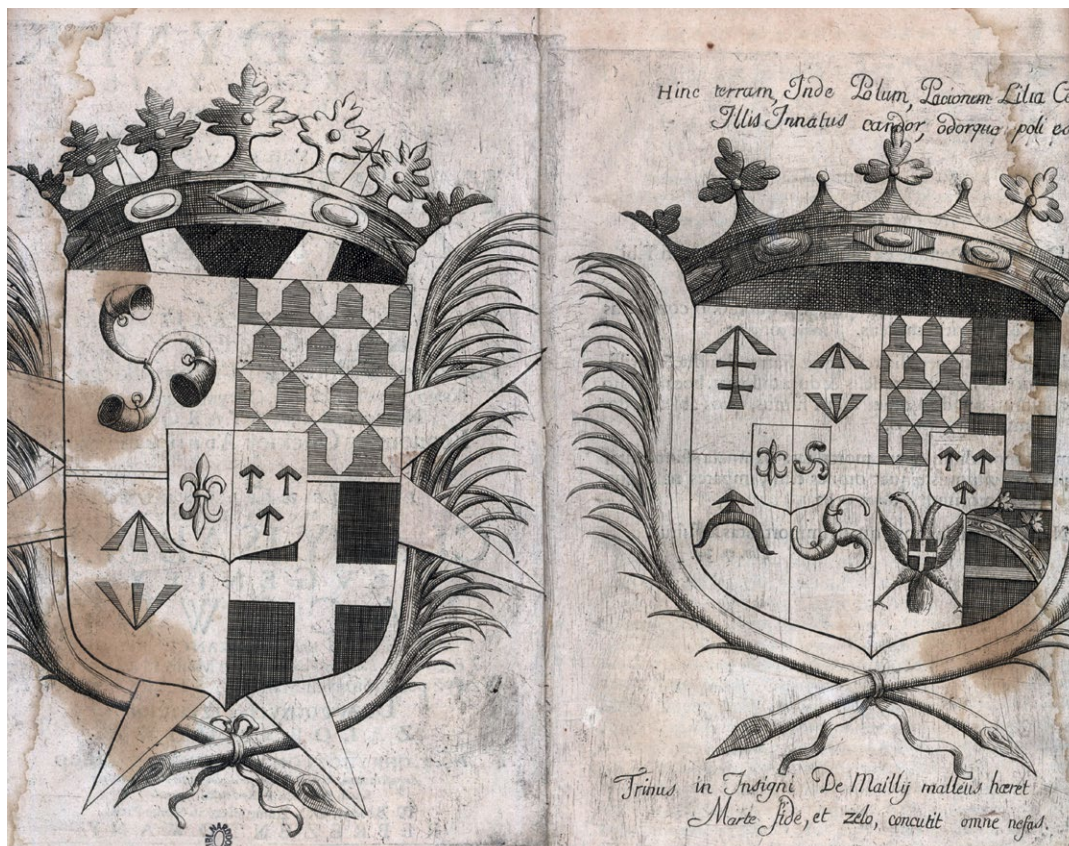 Hinc terram, Inde Polum, Pacionem Lilia
Illis Innatus candor, odorque poli
Trinus in Insigni De Maillÿ malleus hæret
Marte fide, et zelo, concutit omne nefas.